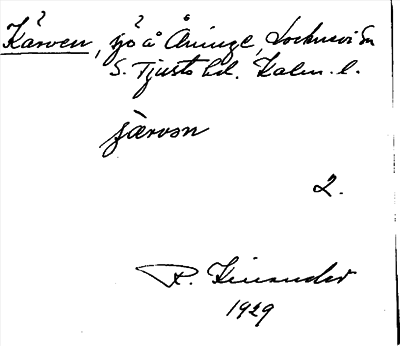 Kärven, sjö å Åninge, Locknevi Sn
S. Tjusts hd. Kalm. l.
järvən
2.
R. Kinander
1929